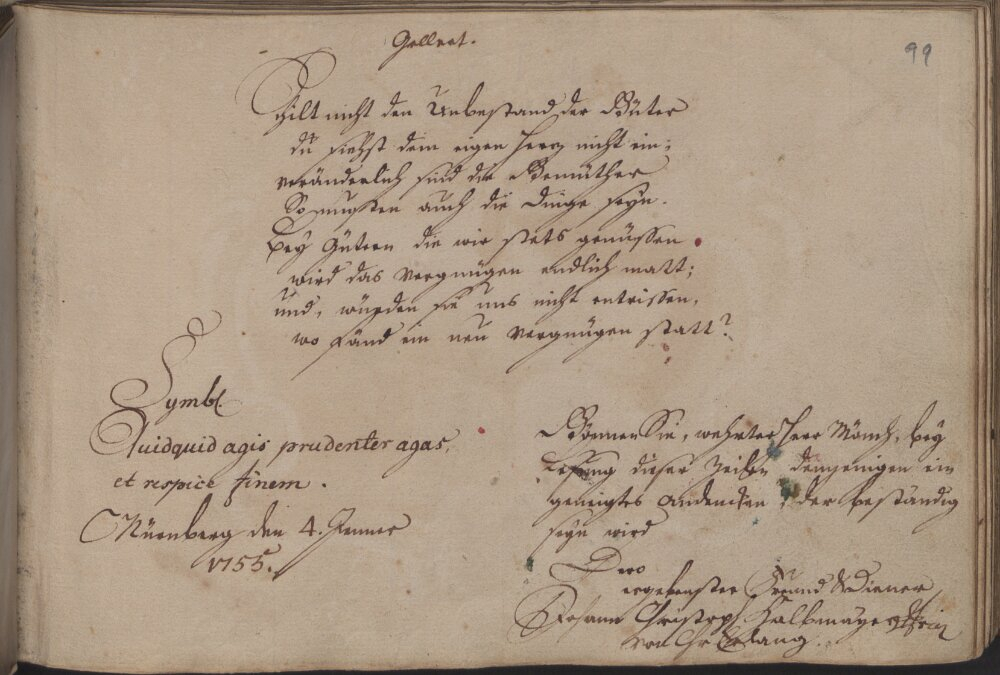 Gellert.
99
Schilt nicht den Unbestand der Güter
du siehst dein eigen Herz nicht ein;
veränderlich sind die Gemüther
So mußten auch die Dinge seyn.
Bey Gütern die wir stets genüssen
wird das Vergnügen endlich matt;
und, würden sie uns nicht entrissen,
wo fänd ein neu Vergnügen statt?
Symbl.
Quidquid agis prudenter agas,
et respice finem.
Nürnberg den 4. Jenner
1755.
Gönnen Sie, wehrter Herr Mönch, bey
Lesung dieser Zeilen demjenigen ein
geneigtes Andencken, der beständig
seyn wird
Dero
ergebenster Freund & Diener
Johann Christoph Halbmayer
von Chr Erlang.